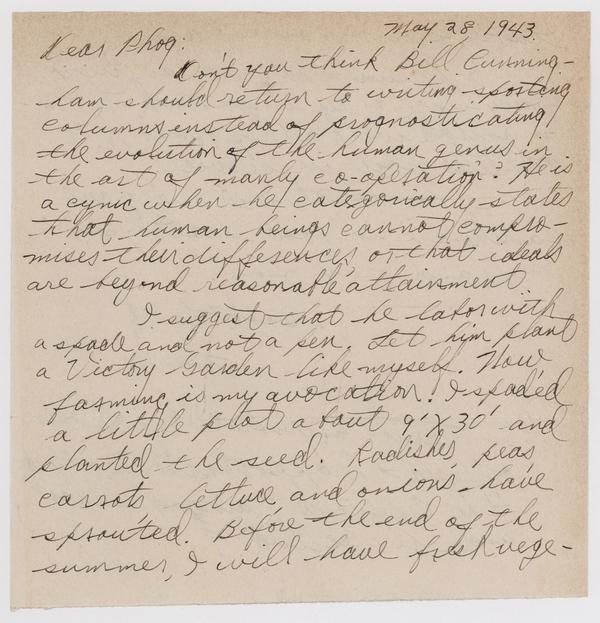 May 28 1943.
Dear Phog:
Don't you think Bill Cunning-
ham should return to writing sporting
columns instead of prognosticating
the evolution of the human genus in
the art of manly co-operation? He is
a cynic when he categorically states
that human beings cannot compro-
mises their differences, or that ideals
are beyond reasonable attainment.
I suggest that he labor with
a spade and not a pen. Let him plant
a Victory Garden like myself. Now
farming is my avocation. I spaded
a little plot about 9' X 30' and
planted the seed. Radishes, peas
carrots, lettuce and onions have
sprouted. Before the end of the
summer, I will have fresh vege-